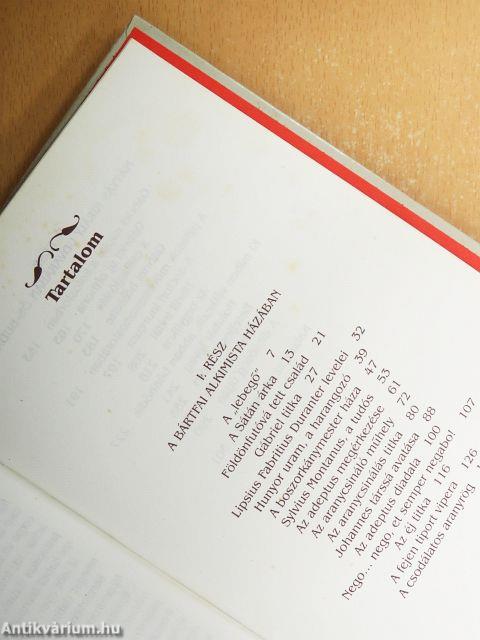 Tartalom
I. RÉSZ
A BÁRTFAI ALKIMISTA HÁZÁBAN
A „lebegő” 7
A Sátán árka 13
Földönfutóvá tett család 21
Gabriel titka 27
Lipsius Fabrilius Duranter levelei 32
Hunyor uram, a harangozó 39
A boszorkánymester háza 47
Sylvius Montanus, a tudós 53
Az adeptus megérkezése 61
Az aranycsináló műhely 72
Az aranycsinálás titka 80
Johannes társsá avatása 88
Az adeptus diadala 100
Nego... nego, et semper negabo! 107
Az éj titka 116
A fejen tiport vipera 126
A csodálatos aranyrög
Antikvárium.hu